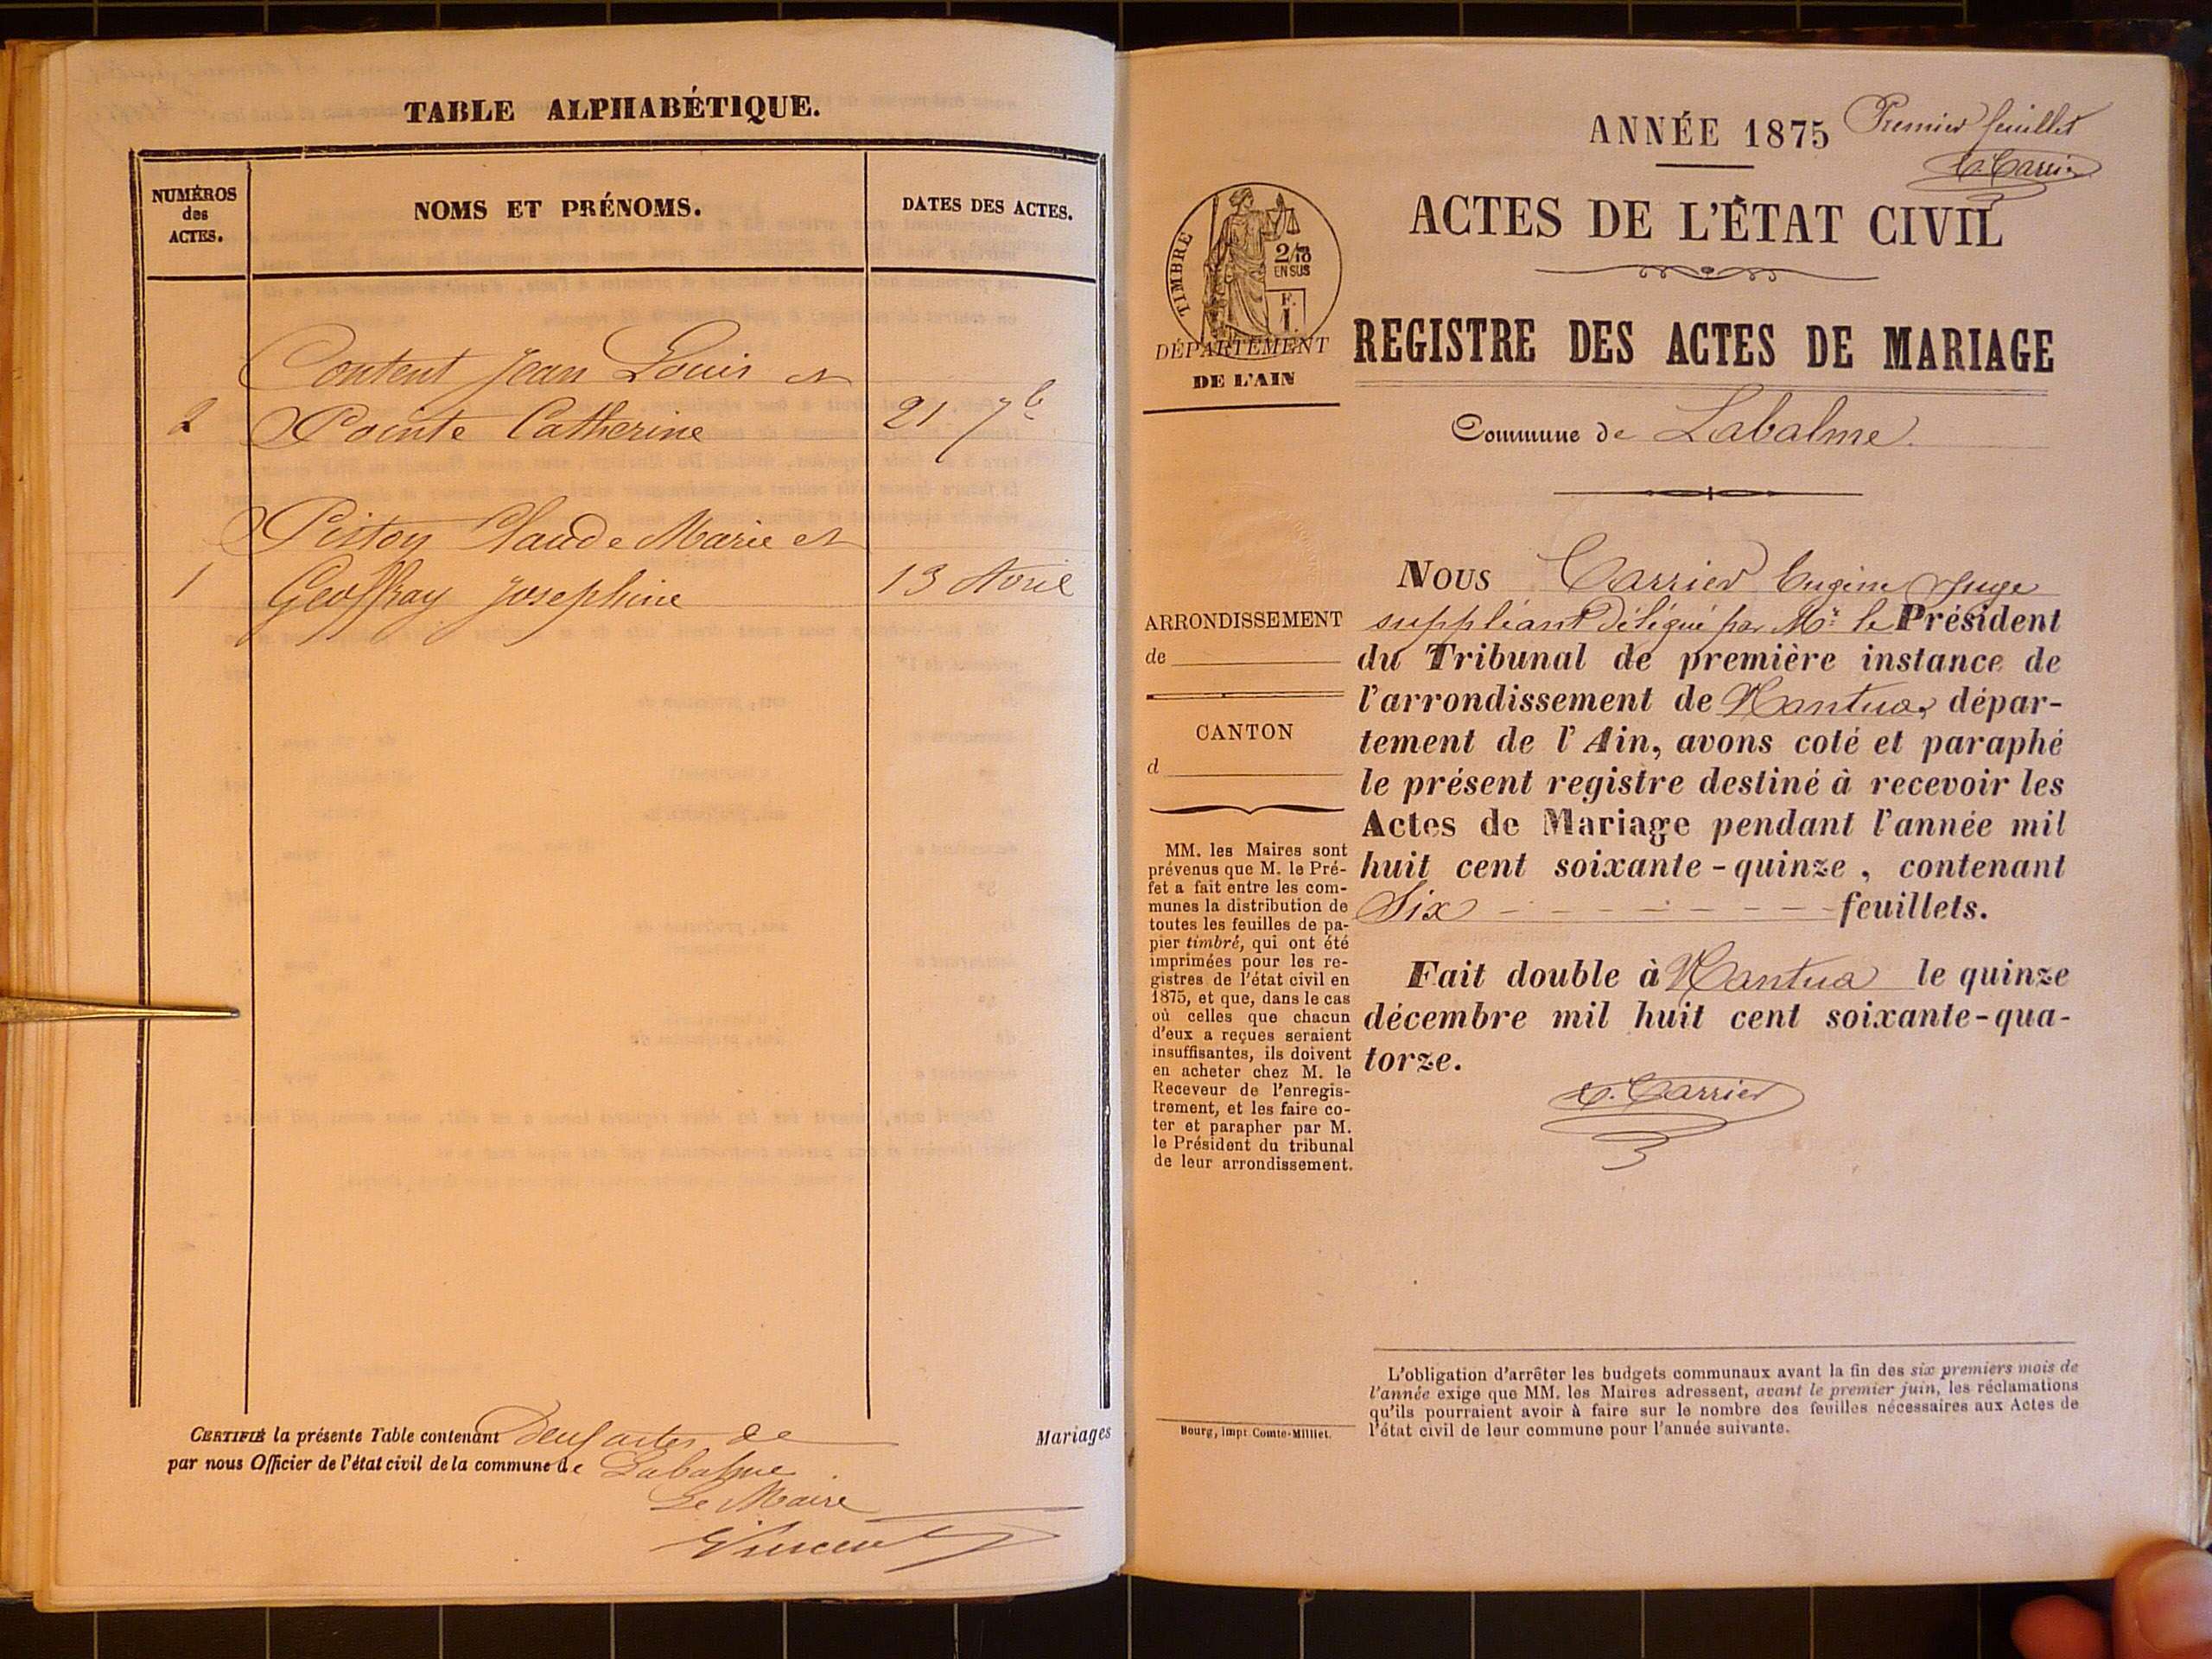 TABLE ALPHABÉTIQUE.
NUMÉROS
des
ACTES.
NOMS ET PRÉNOMS.
DATES DES ACTES.
Content Jean Louis et
2 Pointe Catherine 21 7b
Piston Claude Marie et
1 Geoffray Josephine 13 Avril
CERTIFIÉ la présente Table contenant Deux actes de Mariages
par nous Officier de l'état civil de la commune de Labalme
Le Maire
Vincent
ANNÉE 1875
Premier feuillet
E. Carrier
ACTES DE L'ÉTAT CIVIL
TIMBRE
2/10
EN SUS
F.
1.
DÉPARTEMENT
DE L'AIN
REGISTRE DES ACTES DE MARIAGE
Commune de Labalme.
ARRONDISSEMENT
de
CANTON
d
MM. les Maires sont
prévenus que M. le Pré-
fet a fait entre les com-
munes la distribution de
toutes les feuilles de pa-
pier timbré, qui ont été
imprimées pour les re-
gistres de l'état civil en
1875, et que, dans le cas
où celles que chacun
d'eux a reçues seraient
insuffisantes, ils doivent
en acheter chez M. le
Receveur de l'enregis-
trement, et les faire co-
ter et parapher par M.
le Président du tribunal
de leur arrondissement.
Bourg, impr. Comte-Milliet.
NOUS Carrier Eugène Juge
suppléant délégué par Mr. le Président
du Tribunal de première instance de
l'arrondissement de Nantua, dépar-
tement de l'Ain, avons coté et paraphé
le présent registre destiné à recevoir les
Actes de Mariage pendant l'année mil
huit cent soixante-quinze, contenant
Six - - - - - - - - feuillets.
Fait double à Nantua le quinze
décembre mil huit cent soixante-qua-
torze.
E. Carrier
L'obligation d'arrêter les budgets communaux avant la fin des six premiers mois de
l'année exige que MM. les Maires adressent, avant le premier juin, les réclamations
qu'ils pourraient avoir à faire sur le nombre des feuilles nécessaires aux Actes de
l'état civil de leur commune pour l'année suivante.